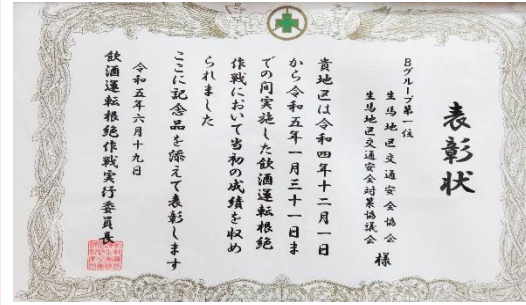 表彰状
Bグループ第一位
生馬地区交通安全協会
生馬地区交通安全対策協議会
様
貴地区は令和四年十二月一日
から令和五年一月三十一日ま
での間実施した飲酒運転根絶
作戦において当初の成績を収め
られました
ここに記念品を添えて表彰します
令和五年六月十九日
飲酒運転根絶作戦実行委員長